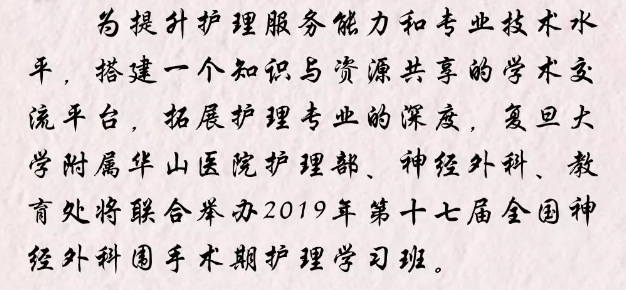 为提升护理服务能力和专业技术水
平，搭建一个知识与资源共享的学术交
流平台，拓展护理专业的深度，复旦大
学附属华山医院护理部、神经外科、教
育处将联合举办2019年第十七届全国神
经外科围手术期护理学习班。